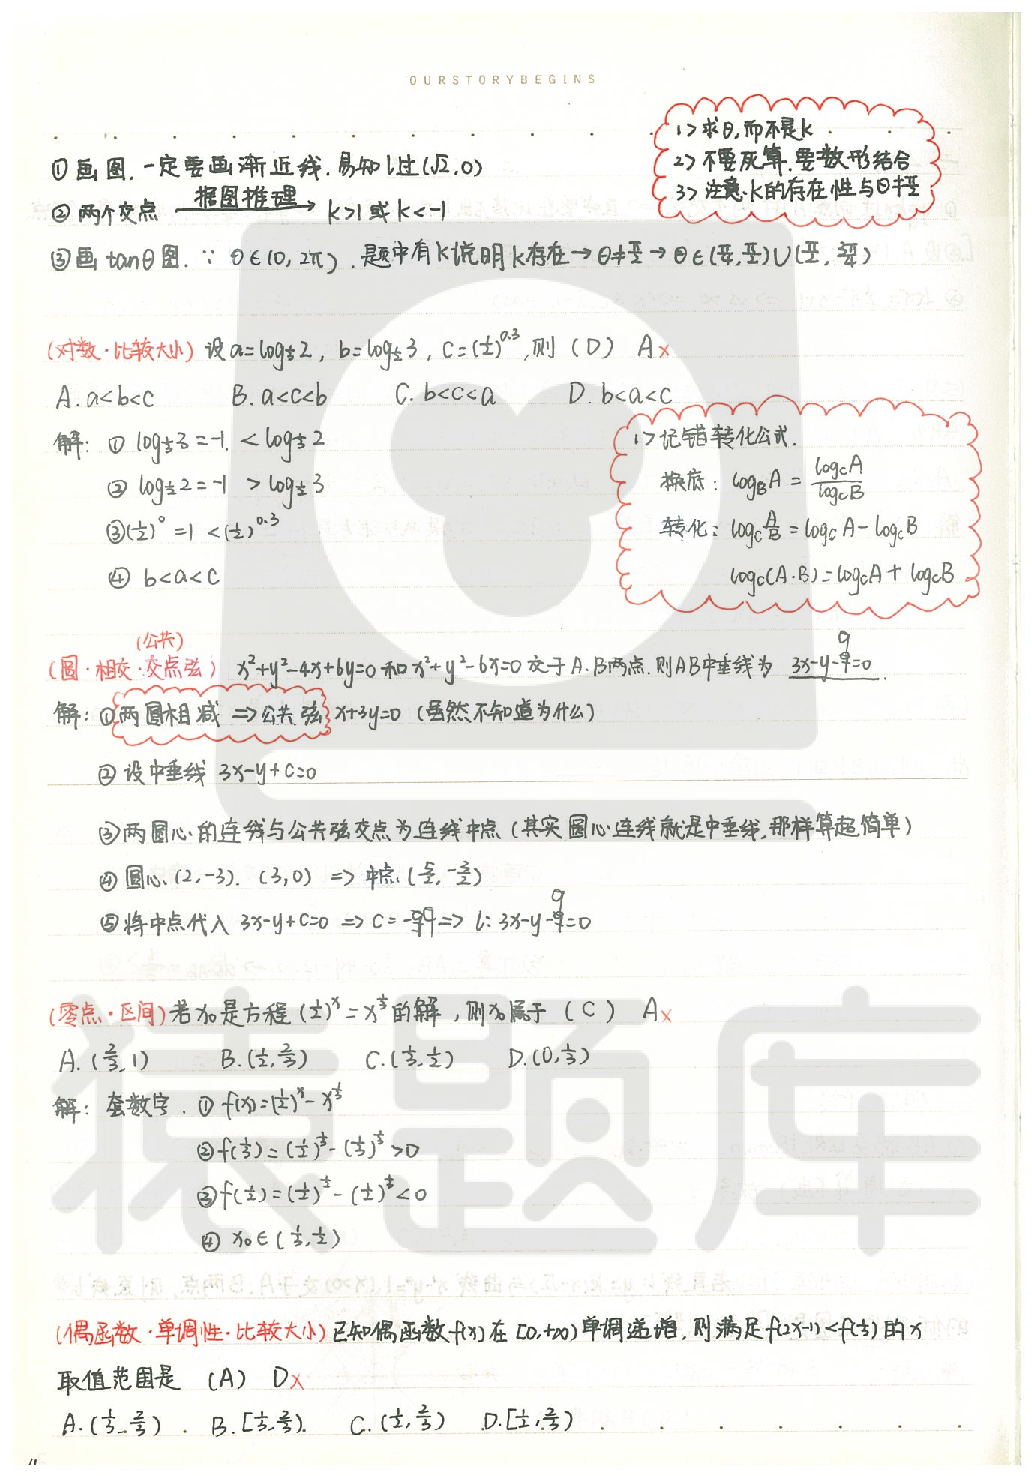 OURSTORYBEGINS
1> 求θ,而不是k
2> 不要死算.要数形结合
3> 注意·k的存在性与θ≠π/2
①画图.一定要画渐近线.易知l过(√2,0)
②两个交点 据图推理→ k>1 或 k<-1
③画tanθ图.∵ θ∈(0,2π).题中有k说明k存在→θ≠π/2→θ∈(π/4,π/2)∪(π/2,3π/4)
(对数·比较大小) 设a=log⅓2, b=log½3, c=(½)^0.3,则 (D) A×
A.a<b<c B.a<c<b C.b<c<a D.b<a<c
解: ① log⅓3=-1.<log⅓2
② log½2=-1 >log½3
③(½)^0=1 <(½)^0.3
④ b<a<c
1> 记错转化公式.
换底: log_B A = log_C A / log_C B
转化: log_C A/B = log_C A - log_C B
log_C(A·B)=log_C A + log_C B
(公共)
(圆·相交·交点弦) x²+y²-4x+6y=0 和 x²+y²-6x=0 交于A.B两点.则AB中垂线为 3x-y-9=0.
解: ①两圆相减 ⇒公共弦 x+3y=0 (虽然不知道为什么)
②设中垂线 3x-y+c=0
③两圆心的连线与公共弦交点为连线中点 (其实圆心连线就是中垂线.那样算超简单)
④ 圆心.(2,-3). (3,0) ⇒ 中点.(5/2,-3/2)
⑤将中点代入 3x-y+c=0 ⇒ c=-9 ⇒ l: 3x-y-9=0
(零点·区间) 若x₀是方程 (½)^x=x^⅓的解,则x₀属于 (C) A×
A.(⅔,1) B.(½,⅔) C.(⅓,½) D.(0,⅓)
解: 套数字. ① f(x)=(½)^x-x^⅓
②f(⅓)=(½)^⅓-(⅓)^⅓>0
③f(½)=(½)^½-(½)^⅓<0
④ x₀∈(⅓,½)
(偶函数·单调性·比较大小) 已知偶函数f(x)在[0,+∞)单调递增,则满足f(2x-1)<f(⅓)的x
取值范围是 (A) D×
A.(⅓,⅔). B.[⅓,⅔). C.(½,⅔) D.[½,⅔)
猿题库